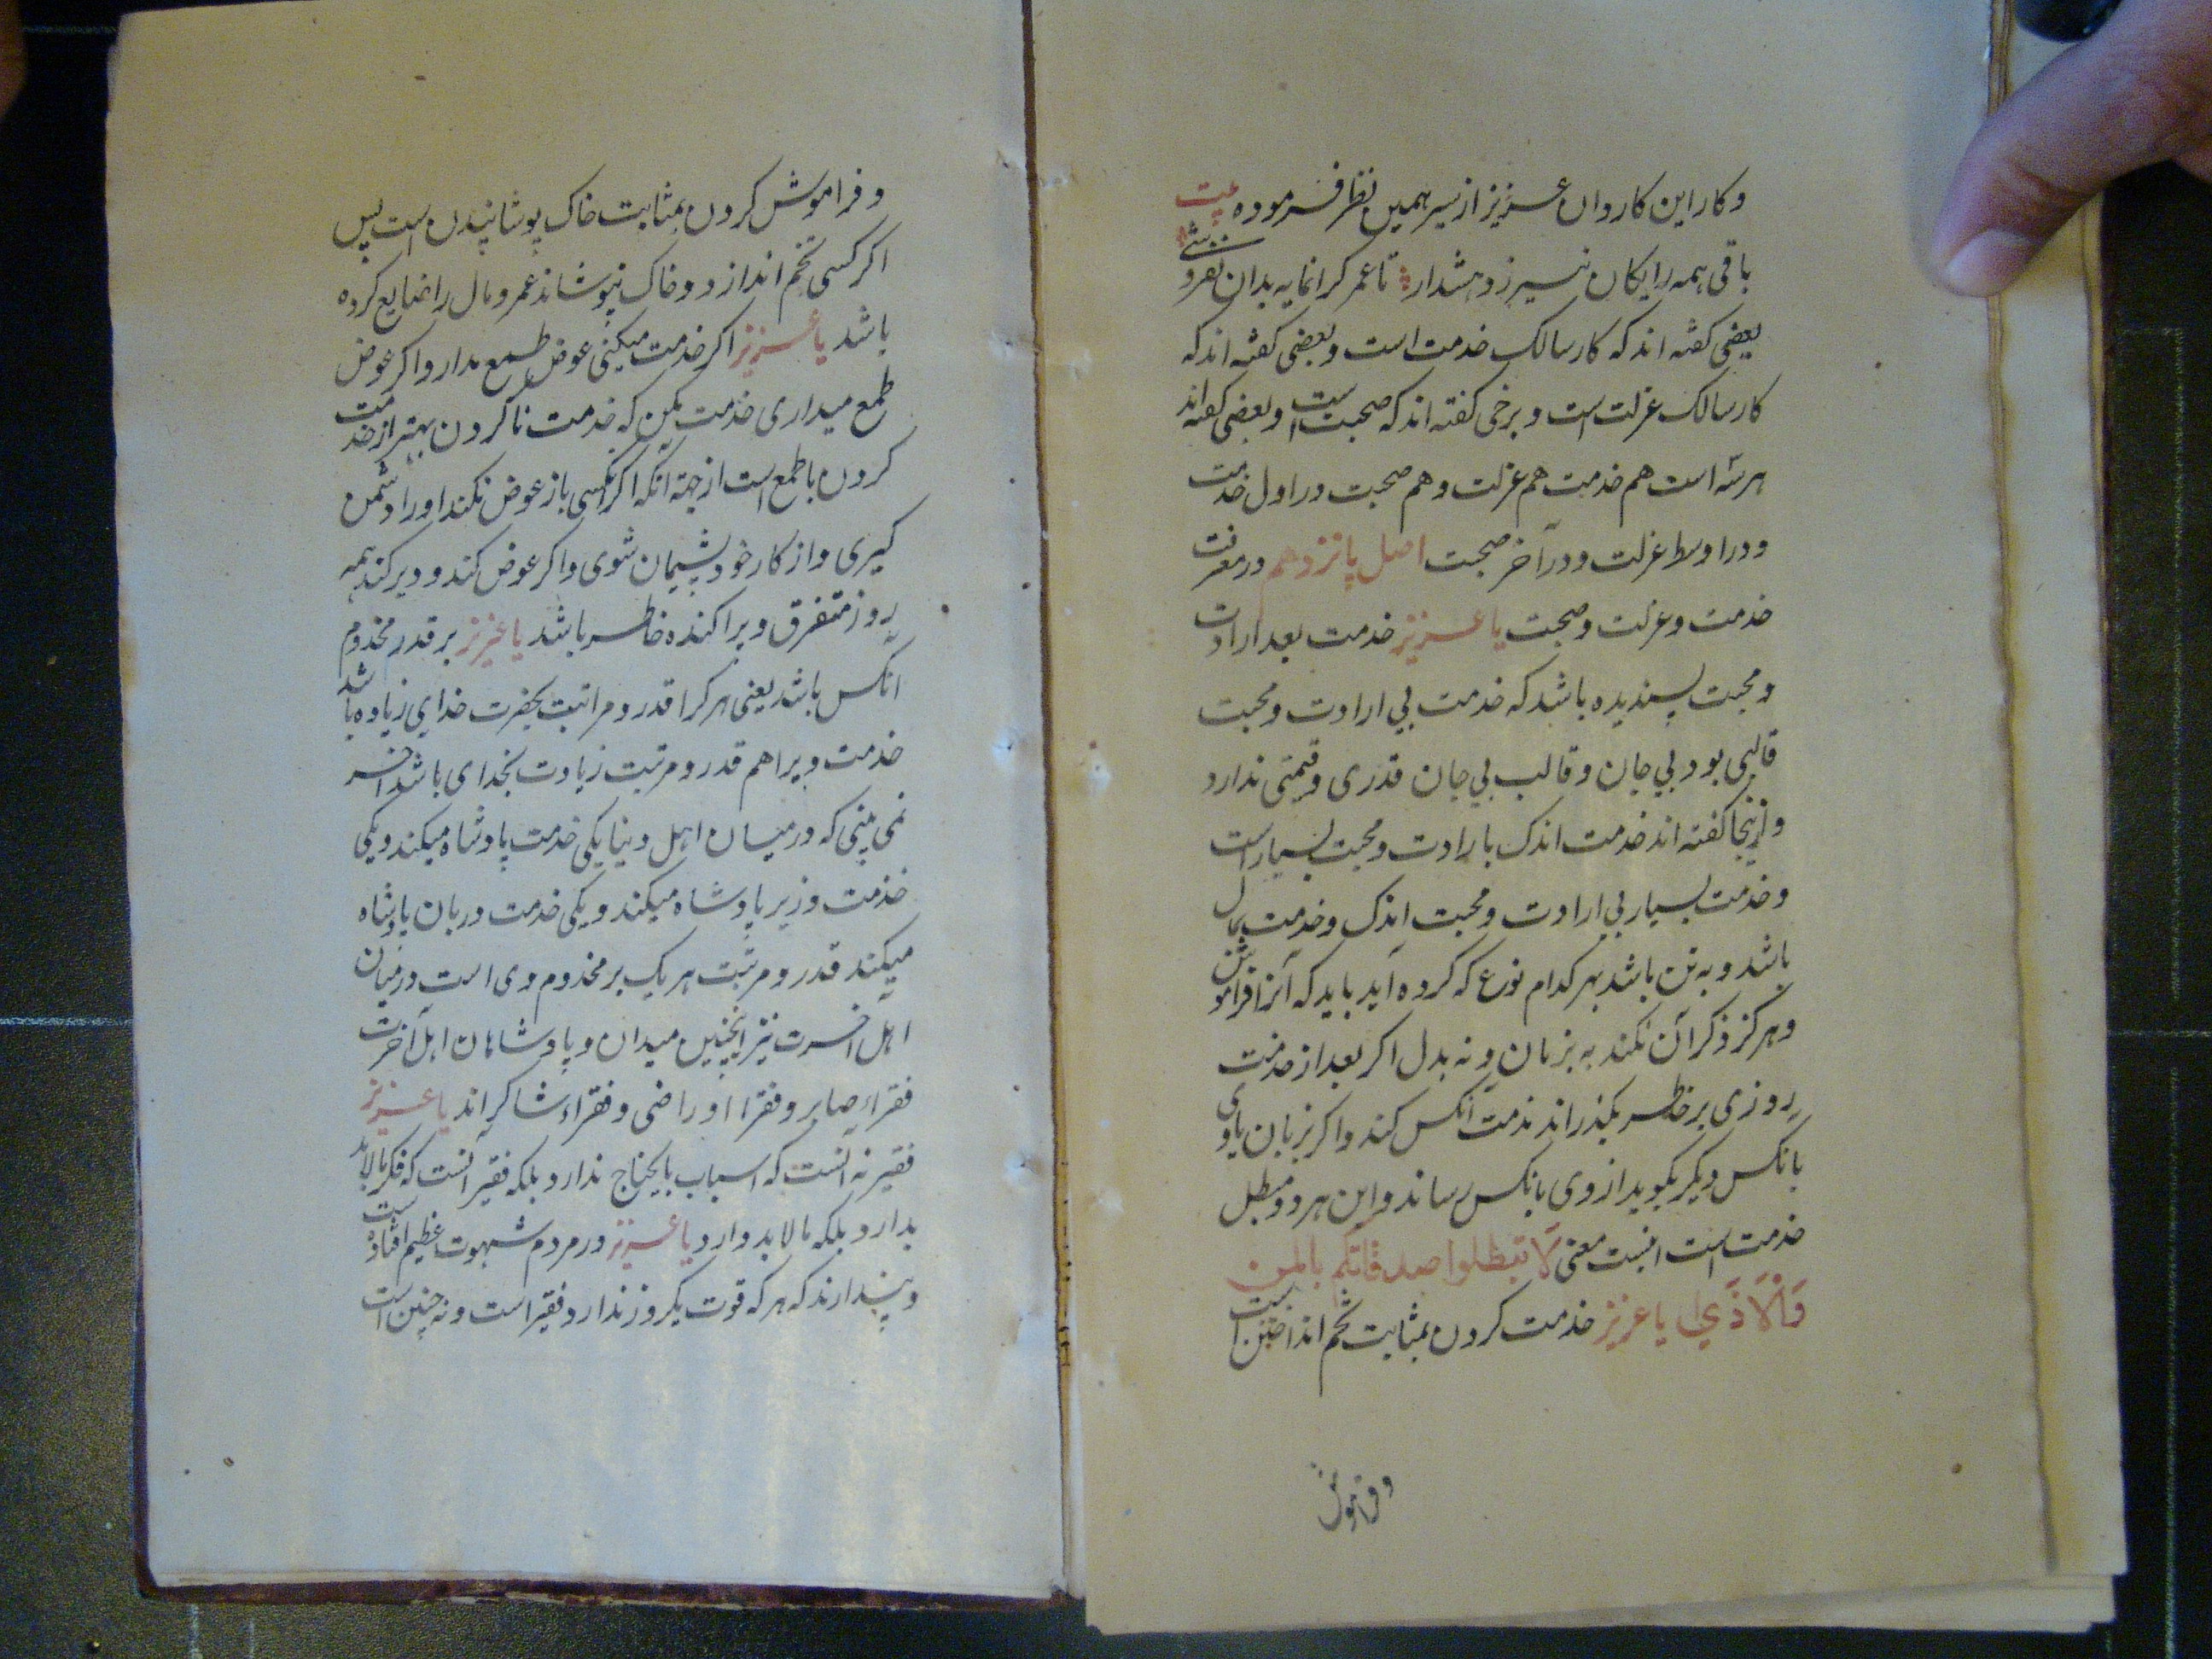 وکار این کاروان عزیز از سیر همین نظر فرموده بیت
باقی همه رایکان نیرزد هشدار تا عمر کرانمایه بدان نفروشی
بعضی کفته اند که کار سالک خدمت است و بعضی کفته اند که
کار سالک عزلت است و برخی کفته اند که صحبت است و بعضی کفته اند
هر سه است هم خدمت هم عزلت و هم صحبت در اول خدمت
و در اوسط عزلت و در آخر صحبت اصل پانزدهم در معرفت
خدمت و عزلت و صحبت یا عزیز خدمت بعد ارادت
و محبت پسندیده باشد که خدمت بی ارادت و محبت
قالبی بود بی جان و قالب بی جان قدری و قیمتی ندارد
و ازینجا کفته اند خدمت اندک با رادت و محبت بسیار است
و خدمت بسیار بی ارادت و محبت اندک و خدمت بمال
باشد و به تن باشد بهر کدام نوع که کرده آید باید که آنرا فراموش
و هرکز ذکر آن نکند به بزبان و نه بدل اکر بعد از خدمت
روزی بر خاطر بکذراند ندمت آنکس کند و اکر بزبان یاوی
بانکس دیکر بکوید از وی بانکس رساند و این هر دو مبطل
خدمت است اینست معنی لا تبطلوا صدقاتکم بالمن
وَالْاَذَي یا عزیز خدمت کردن بمثابت تخم انداختن است
و فراموش
و فراموش کردن بمثابت خاک پوشانیدن است پس
اکر کسی تخم اندازد و خاک نپوشاند عمر و مال را ضایع کرده
باشد یا عزیز اکر خدمت میکنی عوض طمع مدار و اکر عوض
طمع میداری خدمت مکن که خدمت نا کردن بهتر از خدمت
کردن با طمع است از جهة آنکه اکر آنکسی باز عوض نکند او را دشمن
کیری و از کار خود پشیمان شوی و اکر عوض کند و دیر کند همه
روز متفرق و پراکنده خاطر باشد یا عزیز بر قدر مخدوم
انکس باشد یعنی هر کرا قدر و مراتبت بحضرت خدای زیاده باشد
خدمت ویرا هم قدر و مرتبت زیادت بخدای باشد آخر
نمی بینی که در میان اهل دنیا یکی خدمت پادشاه میکند و یکی
خدمت وزیر پادشاه میکند و یکی خدمت دربان پادشاه
میکند قدر و مرتبت هر یک بر مخدوم وی است در میان
اهل آخرت نیز اینچنین میدان و پادشاهان اهل آخرت
فقراء صابر و فقرا او راضی و فقراء شاکر اند یا عزیز
فقیر نه آنست که اسباب مایحتاج ندارد بلکه فقیر آنست که فکر مالابد
بدارد بلکه مالابد دارد یا عزیز در مردم شهوت عظیم افتاده است
و پندارند که هر که قوت یکروز ندارد فقیر است و نه چنین است